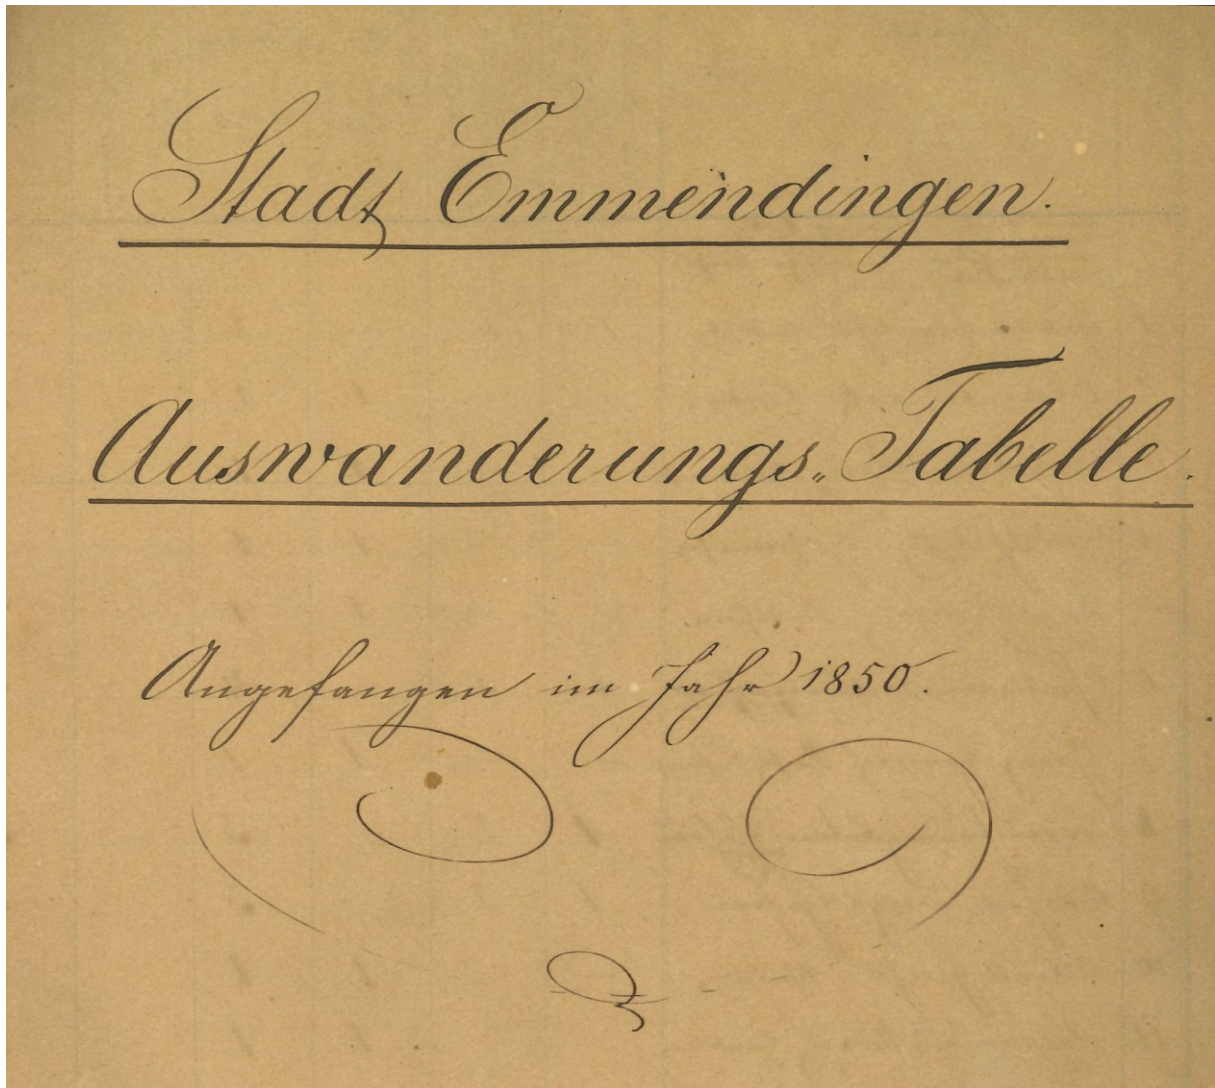 Stadt Emmendingen.
Auswanderungs-Tabelle.
Angefangen im Jahr 1850.